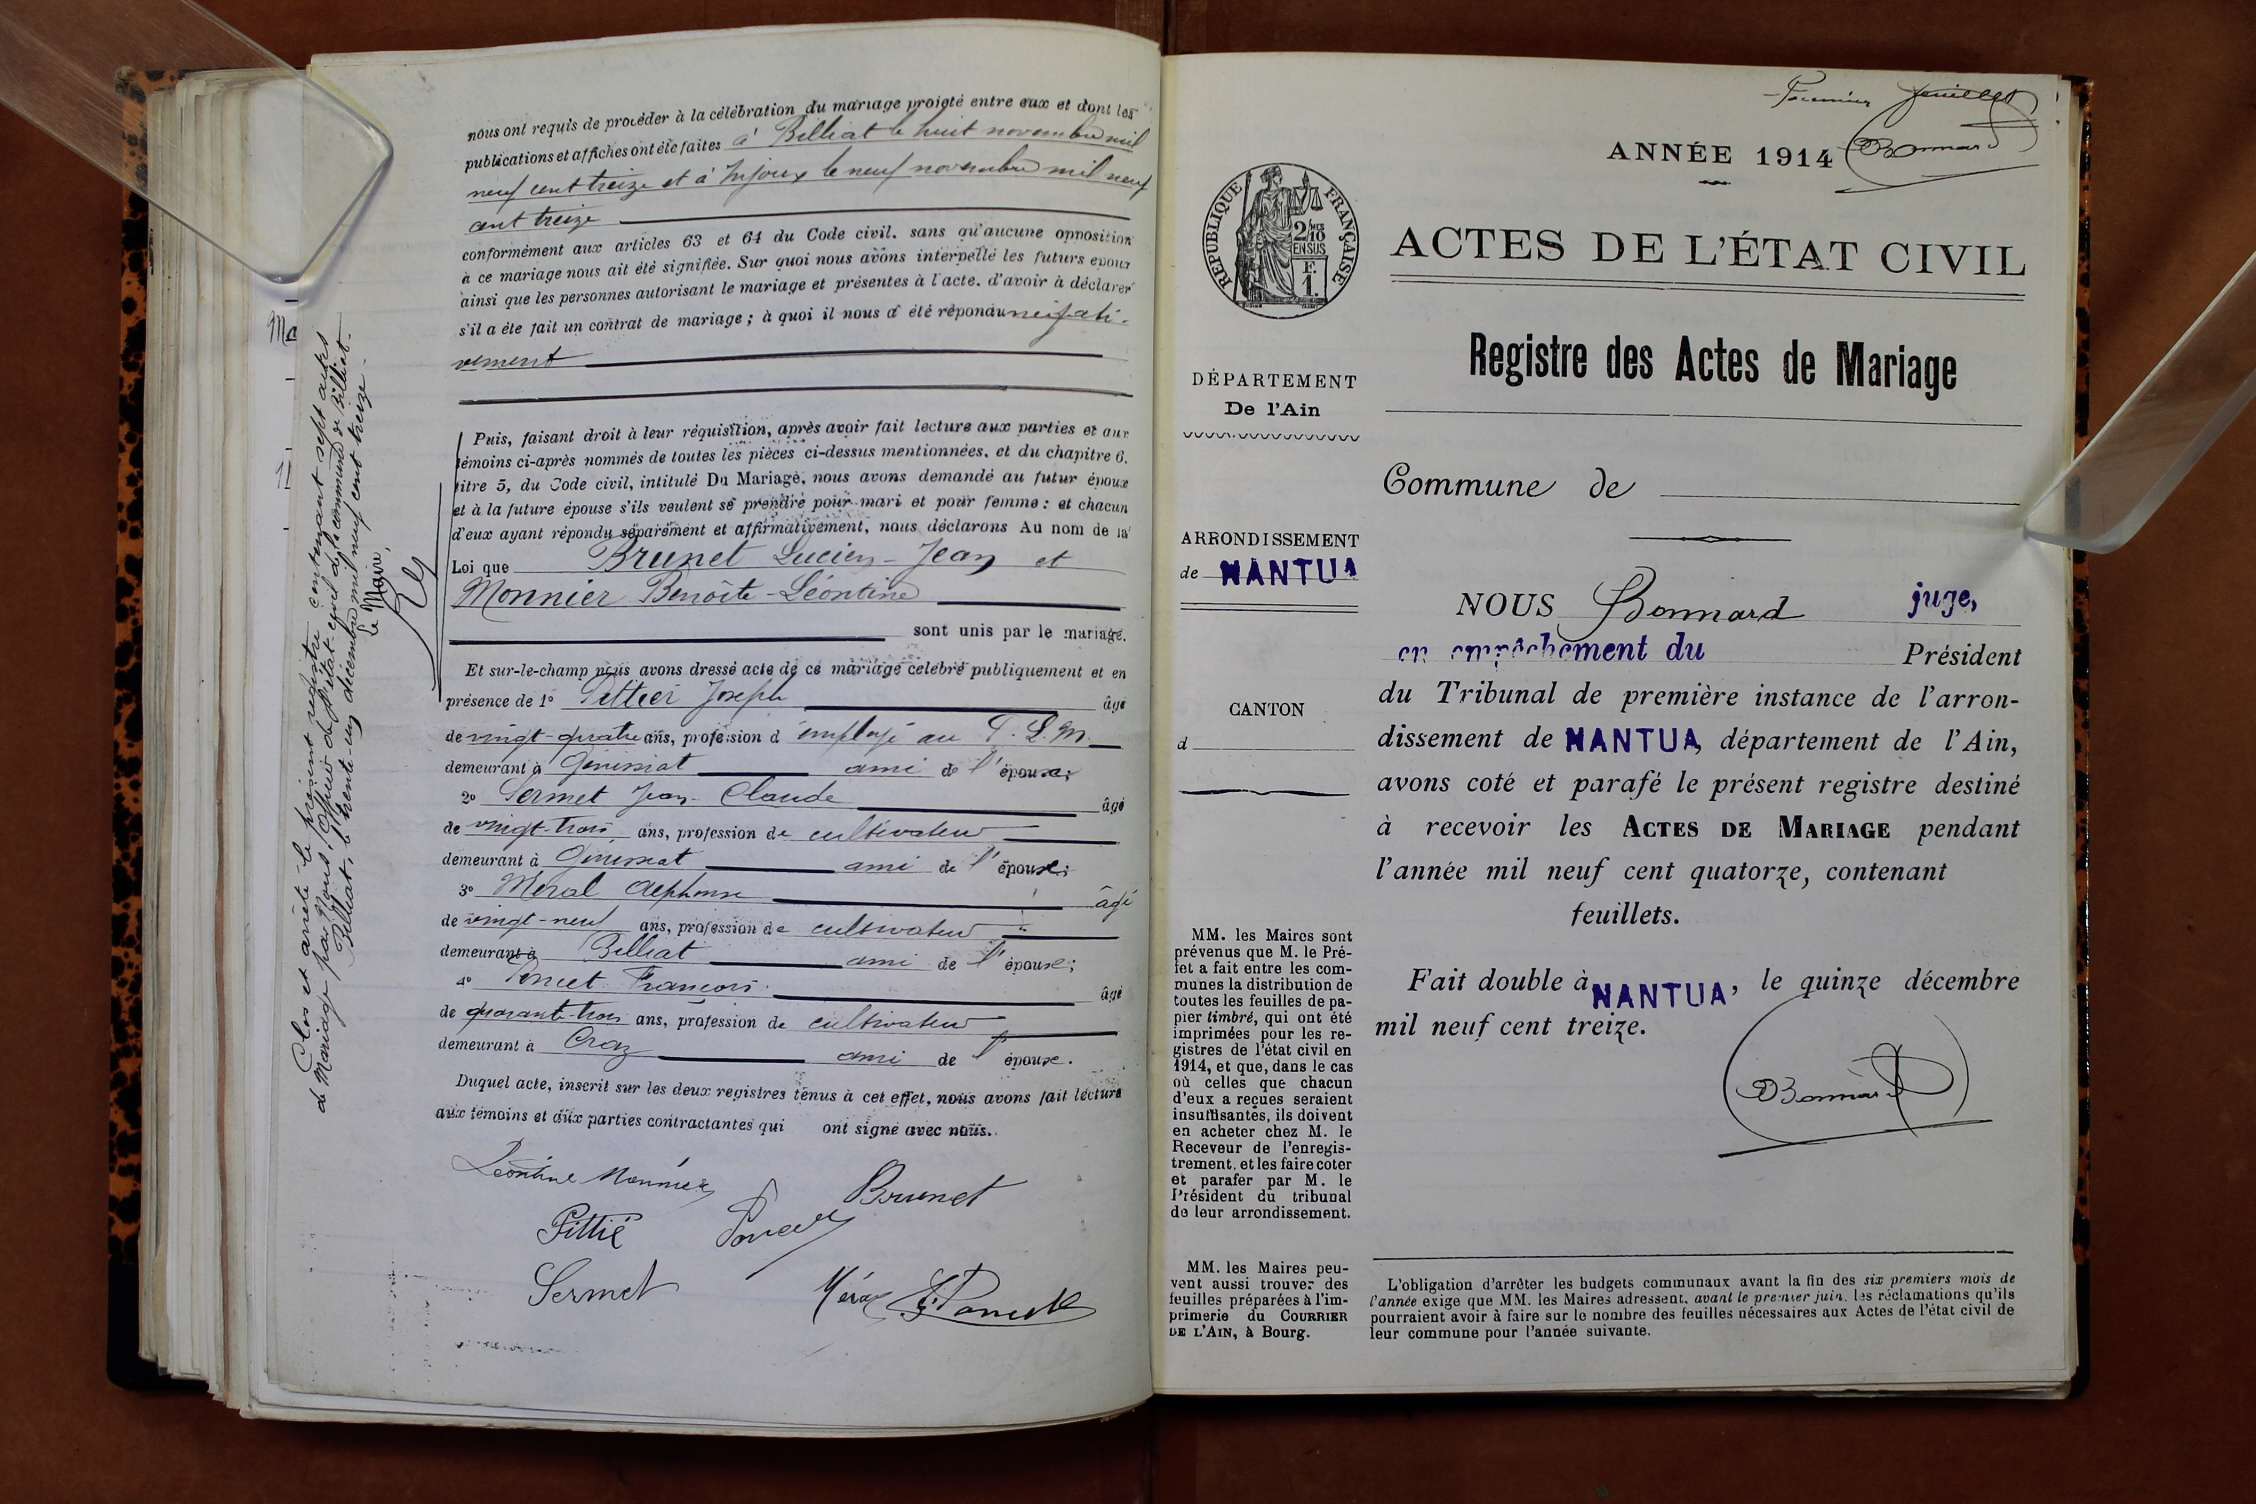 nous ont requis de procéder à la célébration du mariage projeté entre eux et dont les
publications et affiches ont été faites à Billiat le huit novembre mil
neuf cent treize et à Injoux le neuf novembre mil neuf
cent treize
conformément aux articles 63 et 64 du Code civil, sans qu'aucune opposition
à ce mariage nous ait été signifiée. Sur quoi nous avons interpellé les futurs epoux
ainsi que les personnes autorisant le mariage et présentes à l'acte, d'avoir à déclarer
s'il a été fait un contrat de mariage; à quoi il nous a été répondu négati-
vement
Puis, faisant droit à leur réquisition, après avoir fait lecture aux parties et aux
témoins ci-après nommés de toutes les pièces ci-dessus mentionnées, et du chapitre 6,
titre 5, du Code civil, intitulé Du Mariage, nous avons demandé au futur époux
et à la future épouse s'ils veulent se prendre pour mari et pour femme: et chacun
d'eux ayant répondu séparément et affirmativement, nous déclarons Au nom de la
Loi que Brunet Lucien-Jean et
Monnier Benoîte-Léontine
sont unis par le mariage.
Et sur-le-champ nous avons dressé acte de ce mariage celebré publiquement et en
présence de 1º Pittier Joseph âgé
de vingt-quatre ans, profession d'employé au P. L. M.
demeurant à Génissiat ami de l'épouse;
2º Sermet Jean-Claude âgé
de vingt-trois ans, profession de cultivateur
demeurant à Génissiat ami de l'épouse;
3º Méral Alphonse âgé
de vingt-neuf ans, profession de cultivateur
demeurant à Billiat ami de l'épouse;
4º Poncet François âgé
de quarante-trois ans, profession de cultivateur
demeurant à Craz ami de l'épouse.
Duquel acte, inscrit sur les deux registres tenus à cet effet, nous avons fait lecture
aux témoins et aux parties contractantes qui ont signé avec nous.
Léontine Monnier
Brunet
Pittié
Poncet
Sermet
Méral
Clos et arrêté le présent registre contenant sept actes
de Mariage par Nous, Officier de l'état-civil de la commune de Billiat.
Billiat, le trente-un décembre mil neuf cent treize.
Le Maire,
Ma
Premier feuillet
Bonnard
ANNÉE 1914
RÉPUBLIQUE FRANÇAISE
2/10 MES
EN SUS
F.
1.
ACTES DE L'ÉTAT CIVIL
Registre des Actes de Mariage
DÉPARTEMENT
De l'Ain
Commune de
ARRONDISSEMENT
de NANTUA
CANTON
d
NOUS Bonnard juge,
en empêchement du Président
du Tribunal de première instance de l'arron-
dissement de NANTUA, département de l'Ain,
avons coté et parafé le présent registre destiné
à recevoir les ACTES DE MARIAGE pendant
l'année mil neuf cent quatorze, contenant
feuillets.
Fait double à NANTUA, le quinze décembre
mil neuf cent treize.
Bonnard
MM. les Maires sont
prévenus que M. le Pré-
fet a fait entre les com-
munes la distribution de
toutes les feuilles de pa-
pier timbré, qui ont été
imprimées pour les re-
gistres de l'état civil en
1914, et que, dans le cas
où celles que chacun
d'eux a reçues seraient
insuffisantes, ils doivent
en acheter chez M. le
Receveur de l'enregis-
trement, et les faire coter
et parafer par M. le
Président du tribunal
de leur arrondissement.
MM. les Maires peu-
vent aussi trouver des
feuilles préparées à l'im-
primerie du COURRIER
DE L'AIN, à Bourg.
L'obligation d'arrêter les budgets communaux avant la fin des six premiers mois de
l'année exige que MM. les Maires adressent, avant le premier juin, les réclamations qu'ils
pourraient avoir à faire sur le nombre des feuilles nécessaires aux Actes de l'état civil de
leur commune pour l'année suivante.